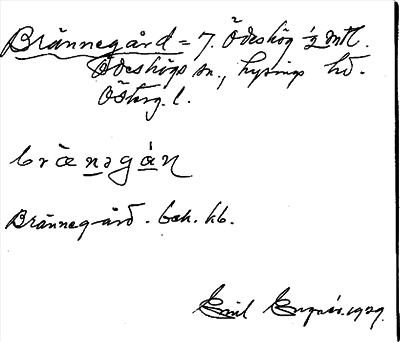 Brännegård = 7. Ödeshög ½ mtl.
Ödeshögs sn., Lysings hd.
Österg. l.
brä̀nəgán
Brännegård. bek. kb.
Emil 1929.